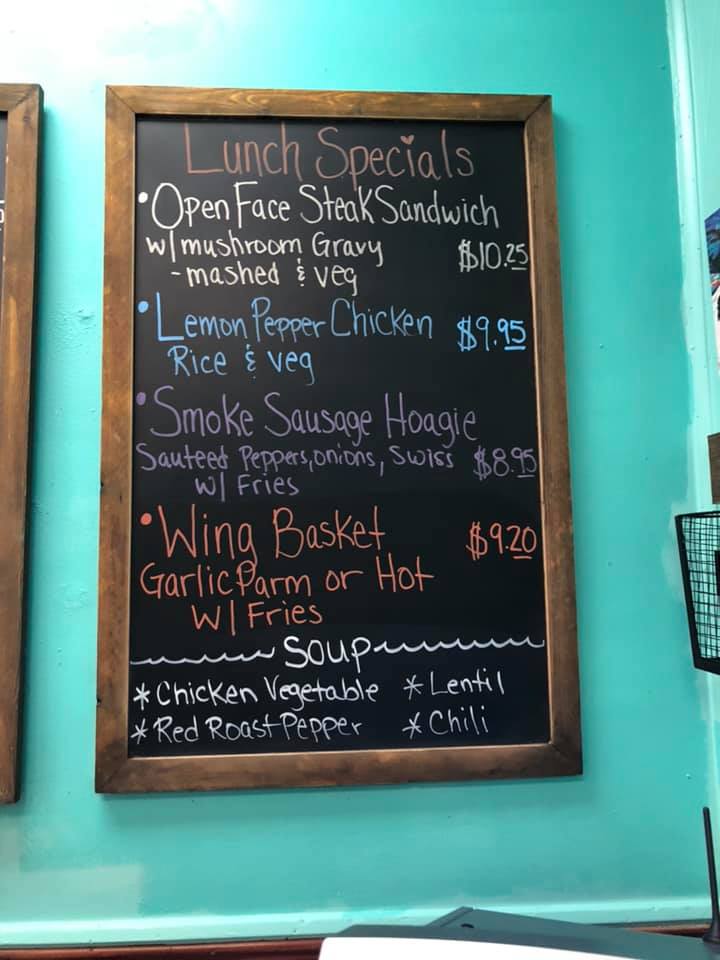 Lunch Specials
• Open Face Steak Sandwich
w/ mushroom Gravy $10.25
- mashed & veg
• Lemon Pepper Chicken $9.95
Rice & veg
• Smoke Sausage Hoagie
Sauteed Peppers, onions, Swiss $8.95
w/ Fries
• Wing Basket $9.20
Garlic Parm or Hot
w/ Fries
Soup
* Chicken Vegetable * Lentil
* Red Roast Pepper * Chili